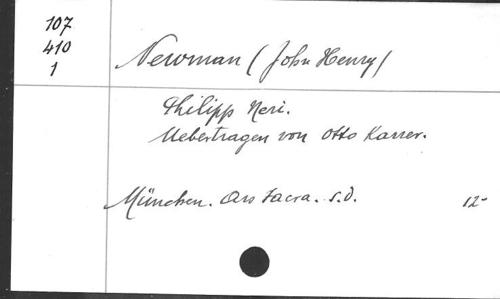 107
410
1
Newman (John Henry)
Philipp Neri.
Uebertragen von Otto Karrer.
München. Ars Sacra. s.d.
12-